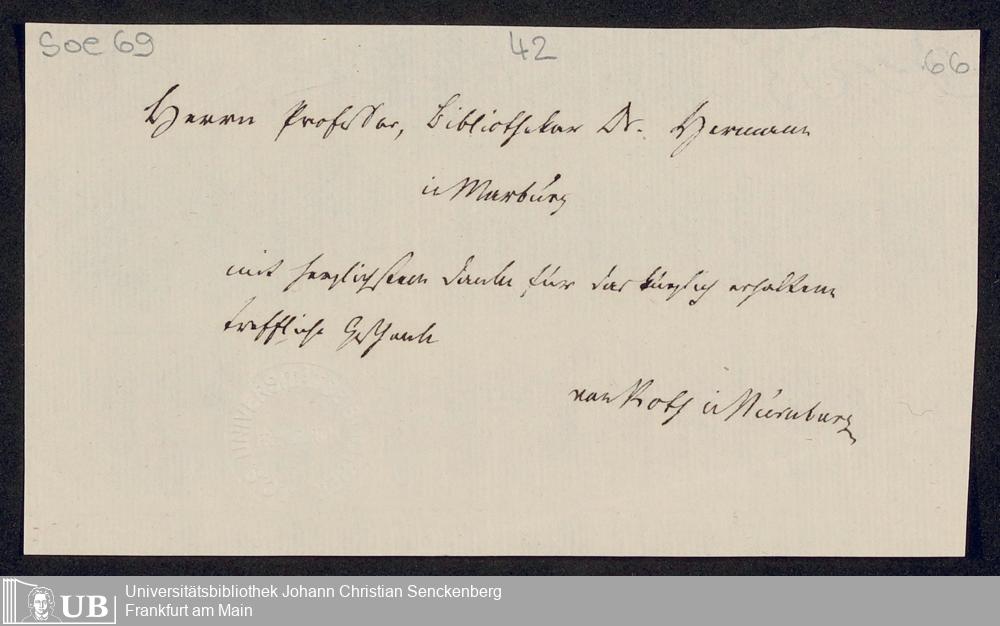 Soe 69 42 66
Herrn Professor, Bibliothekar Dr. Hermann
in Marburg
mit herzlichstem Danke für das kürzlich erhaltene
treffliche Geschenk
von Roth in Nürnberg
UB Universitätsbibliothek Johann Christian Senckenberg
Frankfurt am Main